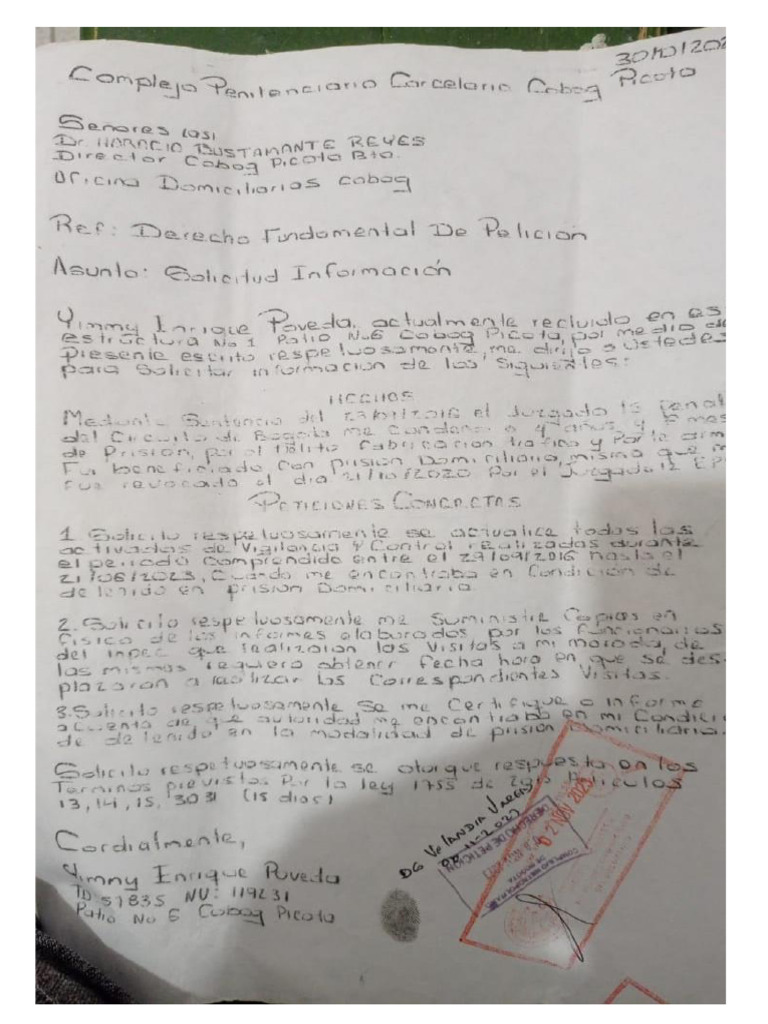 30/10/202
Complejo Penitenciario Carcelario Cobog Picota
Señores (as):
Dr. HARACIO BUSTAMANTE REYES
Director Cobog Picota Bta.
Oficina Domiciliarios Cobog
Ref: Derecho Fundamental De Petición
Asunto: Solicitud Información
Yimmy Enrique Poveda, actualmente recluido en es
estructura No 1 Patio No 6 Cobog Picota, por medio de
presente escrito respetuosamente, me dirijo a ustedes
para Solicitar información de las Siguientes:
HECHOS
Mediante Sentencia del 2016 el Juzgado 13 Penal
del Circuito de Bogota me condeno a 4 años y 6 mes
de Prision, por el Delito Fabricacion trafico y Porte arm
Fui beneficiado con prision Domiciliaria, misma que m
Fue revocado el dia 21/10/2020 Por el Juzgado 12 Ep
PETICIONES CONCRETAS
1 Solicito respetuosamente se actualice todas las
activadas de Vigilancia Y Control realizadas durante
el periodo Comprendido entre el 29/09/2016 hasta el
21/06/2023, Cuando me encontraba en Condición de
detenido en prision Domiciliaria.
2. Solicito respetuosamente me Suministre Copias en
Fisico de los informes elaborados por los funcionarios
del inpec que realizaron las Visitas a mi morada, de
las mismas requiero obtener fecha hora en que se des-
plazaron a realizar las Correspondientes Visitas.
3. Solicito respetuosamente Se me Certifique o informe
acuenta de que autoridad me encontraba en mi Condici
de detenido en la modalidad de prision Domiciliaria.
Solicito respetuosamente se otorgue respuesta en los
Terminos previstos Por la ley 1755 de Articulos
13, 14, 15, 30 31 (15 dias)
Cordialmente,
Yimmy Enrique Poveda
TD 51835 NU: 119231
Patio No 6 Cobog Picota
DG VELANDIA VARGAS
DERECHO DE PETICION
02 NOV 2023
COMPLEJO METROPOLITANO
DE BOGOTA